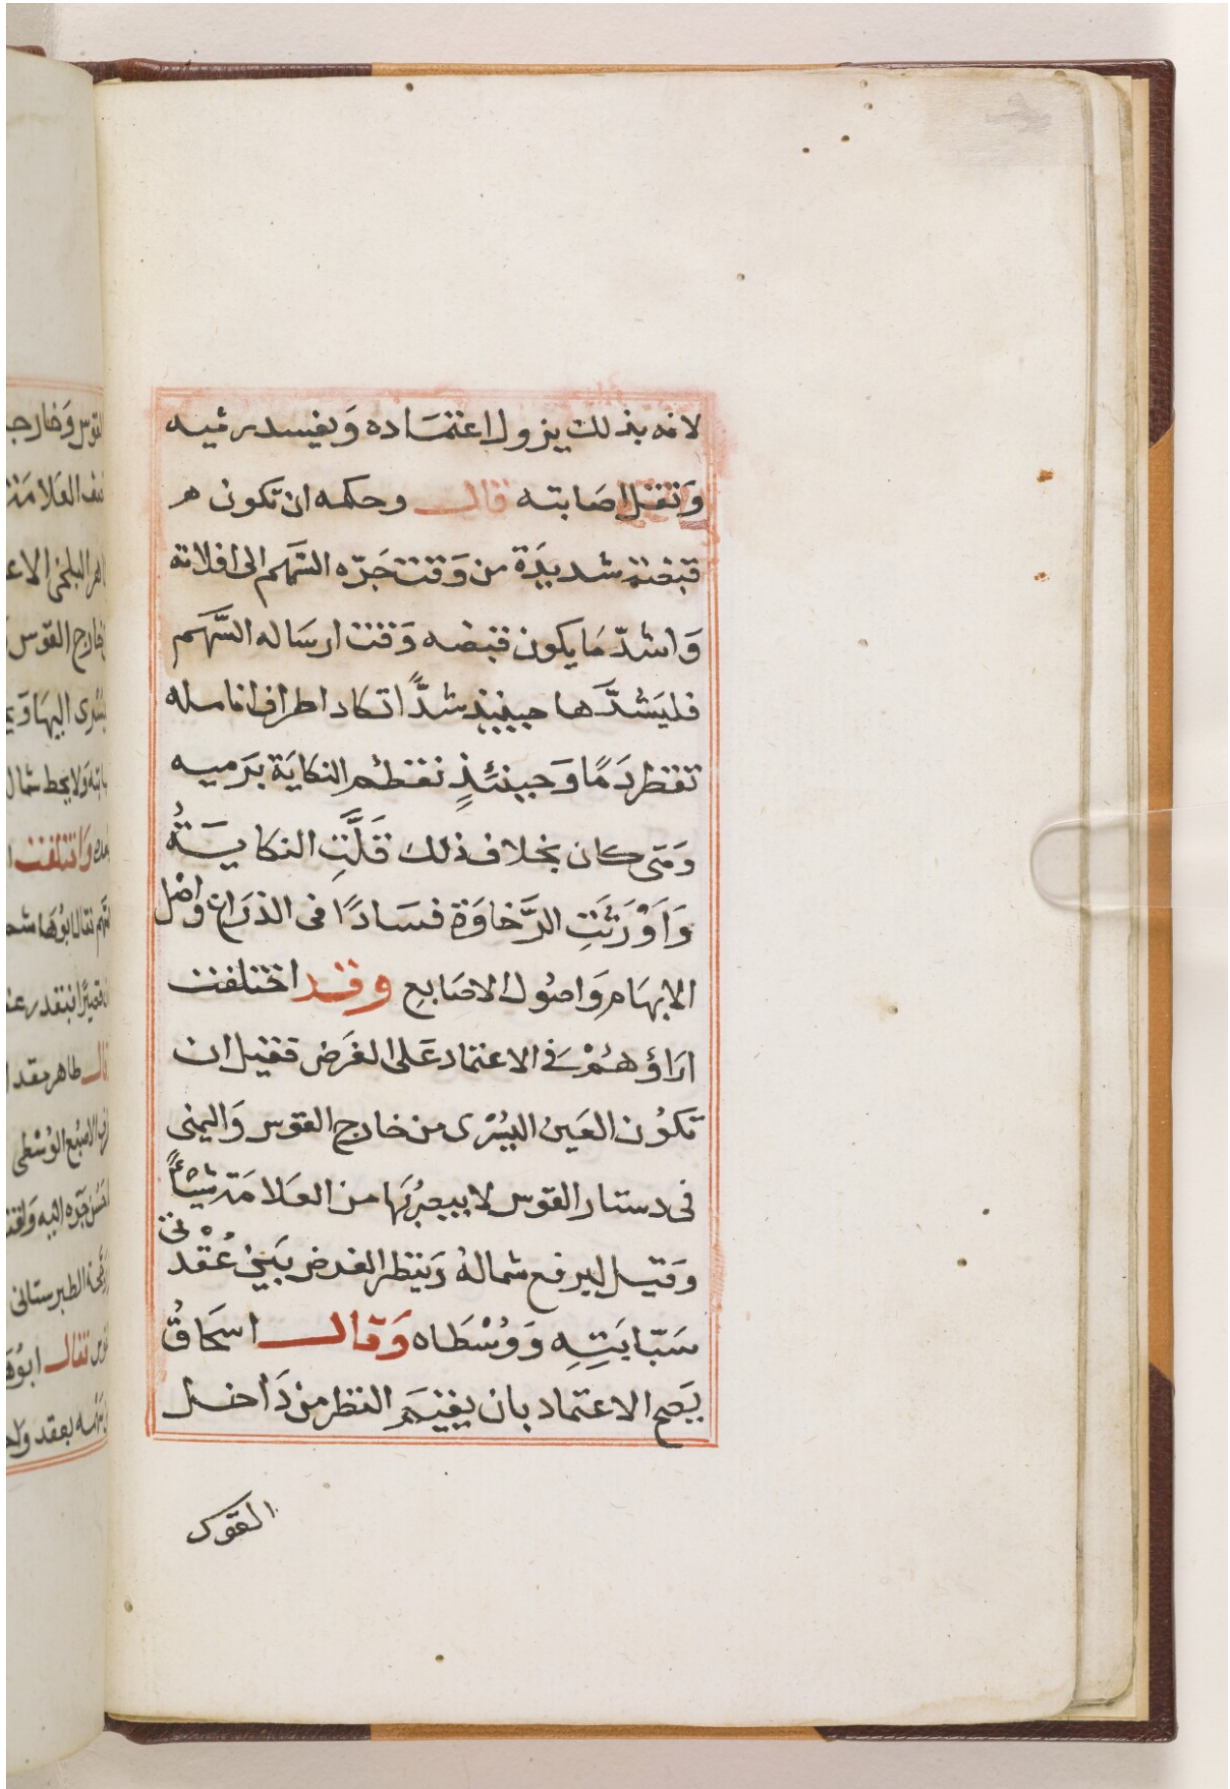 لانه بذلك يزول اعتماده وَيفسد رميه
وَتقل اصَابته قال وحكمه ان تكون
قبضته شديدَة من وَقت جَرّه السَّهم الى افلاته
وَاشدّ مَا يكون قبضه وَقت ارسَاله السَّهَم
فليَشدَّها حينئذٍ شدًّا تكاد اطراف انامله
تقطر دَمًا وَحينئذٍ تعظم النكايَة برَميه
وَمَتى كان بخلاف ذلك قَلَّتِ النكايَةُ
وَاَوْرَثَتِ الرَّخاوَة فسَادًا فى الذرَاع واصْل
الابهَام وَاصُول الاصَابع وقد اختلفت
ارَاؤهُمْ فى الاعتماد عَلى الغَرَض فقيل ان
تكوُن العَين اليُسْرى من خارج القوس وَاليمنى
فى دستار القوس لا يبصرُ بَها من العَلامَة شيْأً
وَقيل ليرفع شمالهُ وَينظر الغرض بَيْن عُقْدتى
سَبّابَتِهِ وَوُسْطَاه وَقال اسحَاقُ
يَصح الاعتماد بان يقسم النظر من دَاخل
القوس
القوس وَخارجه
العَلامَة
البلخى
خارج القوس
اليهَا
شمال
وَاختلفت
فقال ابوُهَاشم
قال طاهر
الاصْبع الوُسْطى
الطبرستانى
فقال
بعقد